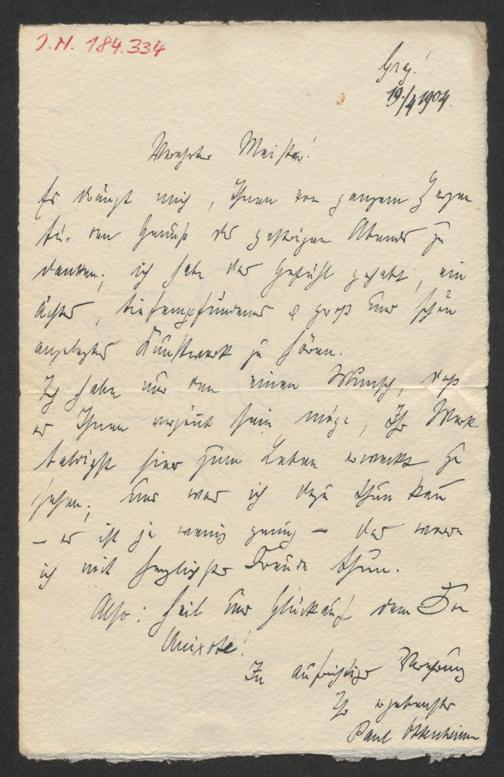 J.N. 184.334
Graz!
19./4 1904.
Verehrter Meister!
Es drängt mich, Ihnen von ganzem Herzen
für den Genuß des gestrigen Abends zu
danken; ich habe das Gefühl gehabt, ein
ächtes, tiefempfundenes & groß und schön
angelegtes Kunstwerk zu hören.
Ich habe nur den einen Wunsch, daß
es Ihnen vergönnt sein möge, Ihr Werk
baldigst hier zum Leben erweckt zu
sehen; und was ich dazu thun kann
– es ist ja wenig genug – das werde
ich mit herzlichster Freude thun.
Also: Heil und Glückauf dem Don
Quixote!
In aufrichtiger Verehrung
Ihr ergebenster
Paul Ottenheimer